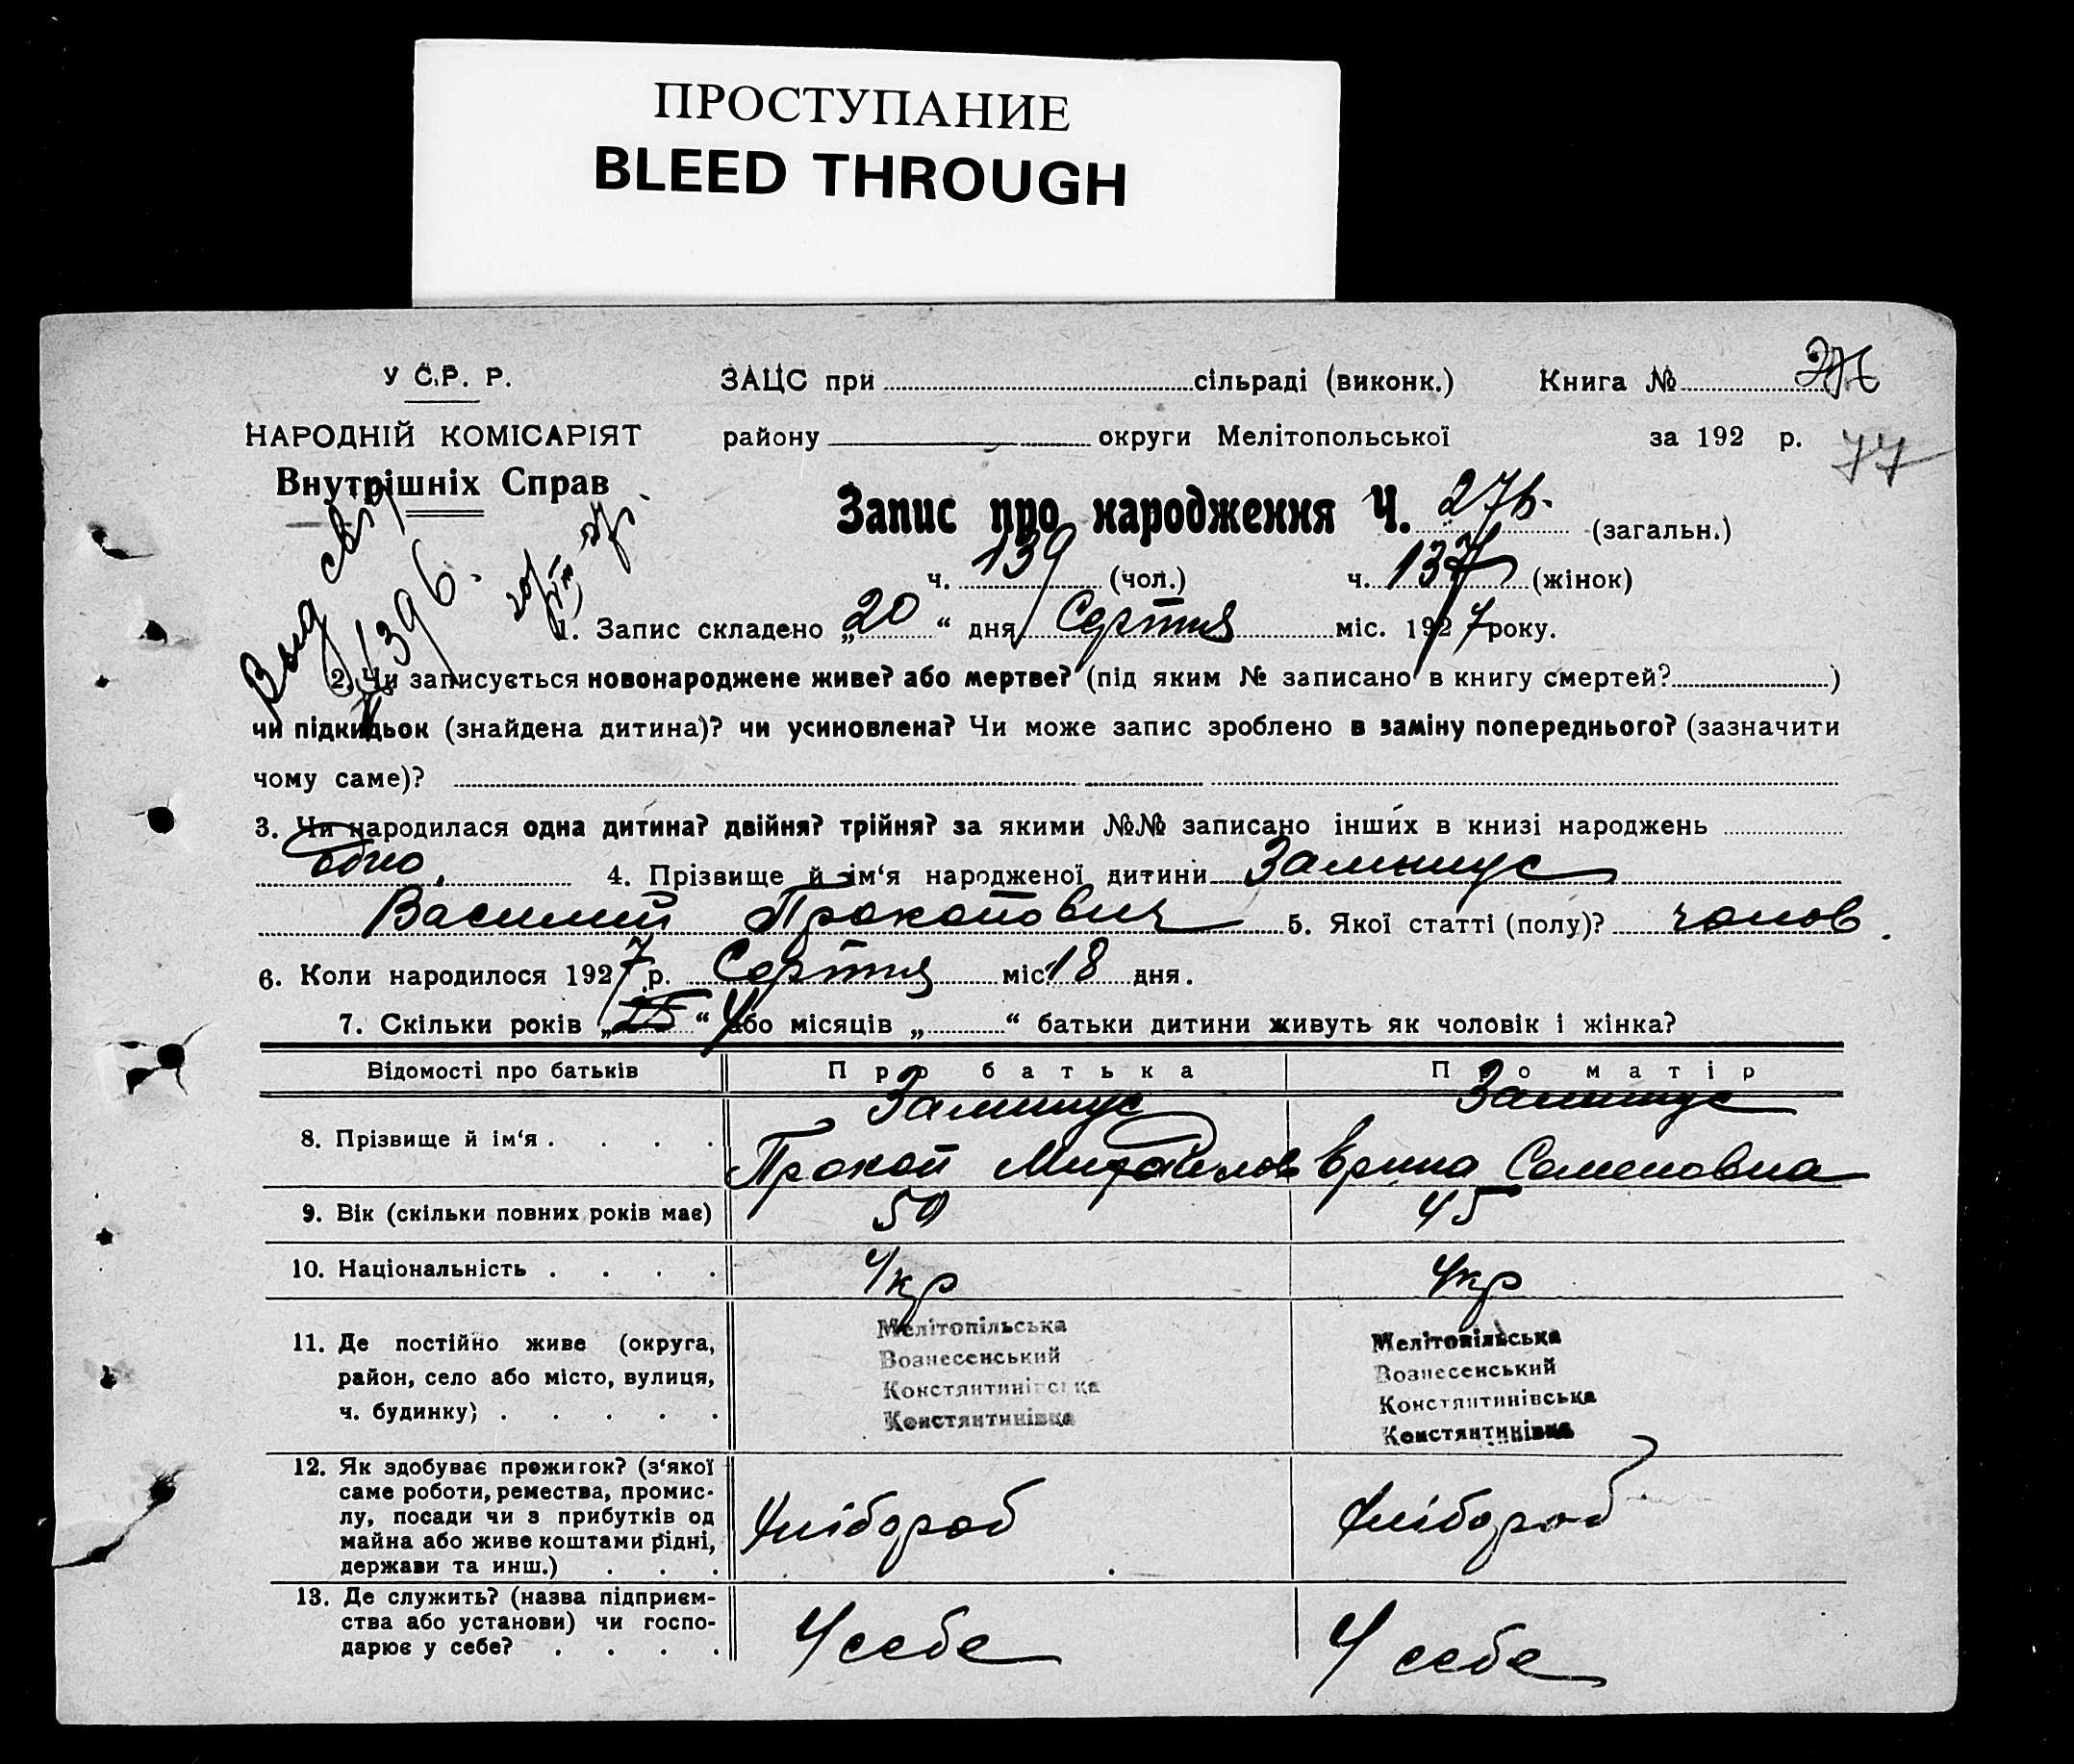 ПРОСТУПАНИЕ
BLEED THROUGH
У С.Р. Р.
ЗАЦС при сільраді (виконк.) Книга №
НАРОДНІЙ КОМІСАРІЯТ
району округи Мелітопольської за 192 р. 77
Внутрішніх Справ
Запис про народження Ч. 276. (загальн.)
ч. 139 (чол.) ч. 137 (жінок)
1. Запис складено „20“ дня Серпня міс. 1927 року.
2. Чи записується новонароджене живе? або мертве? (під яким № записано в книгу смертей? )
чи підкидьок (знайдена дитина)? чи усиновлена? Чи може запис зроблено в заміну попереднього? (зазначити
чому саме)?
3. Чи народилася одна дитина? двійня? трійня? за якими №№ записано інших в книзі народжень
одно. 4. Прізвище й ім‘я народженої дитини
Василий Прокопович 5. Якої статті (полу)? чолов.
6. Коли народилося 1927 р. Серпня міс. 18 дня.
7. Скільки років „ “ або місяців „ “ батьки дитини живуть як чоловік і жінка?
Відомості про батьків Про батька Про матір
8. Прізвище й ім‘я . . . .
Прокоп Михайлов Ерина Семеновна
9. Вік (скільки повних років має) 50 45
10. Національність . . . . Укр Укр
11. Де постійно живе (округа,
район, село або місто, вулиця,
ч. будинку) . . . . .
Мелітопільська Мелітопільська
Вознесенський Вознесенський
Констянтинівська Констянтинівська
Констянтинівка Констянтинівка
12. Як здобуває прожиток? (з‘якої
саме роботи, ремества, промис-
лу, посади чи з прибутків од
майна або живе коштами рідні,
держави та инш.) . . .
Хлібороб Хлібороб
13. Де служить? (назва підприєм-
ства або установи) чи госпо-
дарює у себе? . . . .
У себе У себе